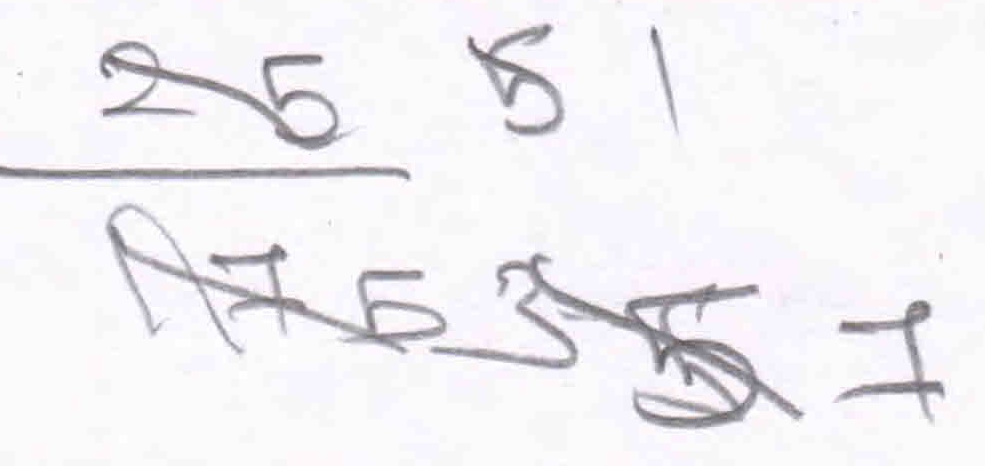 25 5 1
175 3 5 1